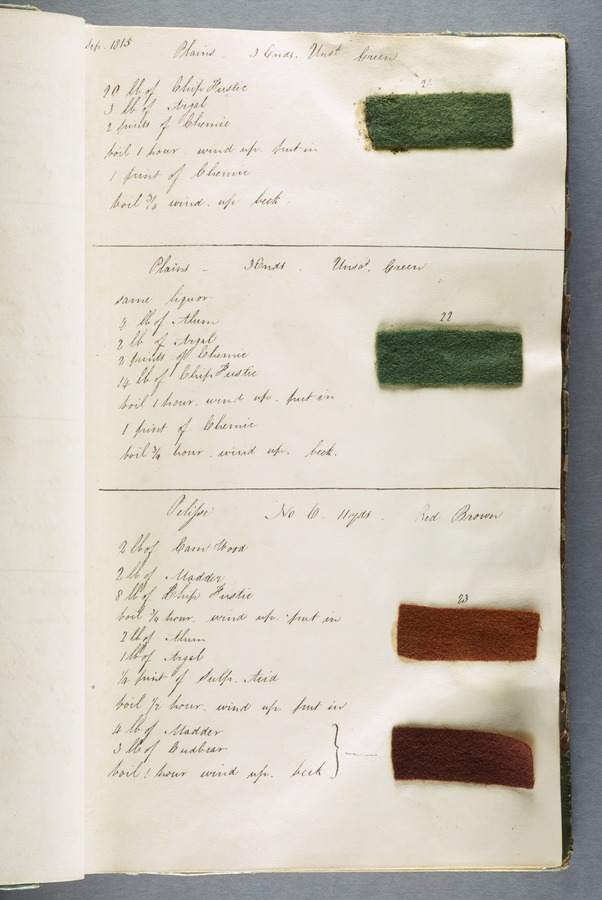 Sep. 1815
Plains 3 Ends. Uns^d. Green
21
20 lb of Chip Fustic
3 lb of Argal
2 pints of Chemic
boil 1 hour wind up. put in
1 pint of Chemic
boil ¾ wind. up beck.
Plains - 3 Ends. Uns^d. Green
22
same liquor
2 lb of Argal
2 pints of Chemic
14 lb of Chip Fustic
boil 1 hour. wind up. put in
1 pint of Chemic
boil ¾ hour. wind up. beck.
Pelisse No 6. 11 yds. Red Brown
23
2 lb of Cam Wood
2 lb of Madder
8 lb of Chip Fustic
boil ¾ hour. wind up. put in
2 lb of Alum
1 lb of Argal
pint of Sulp. Acid
boil ½ hour. wind up. put in
4 lb of Madder
3 lb of Cudbear
boil 1 hour wind up. beck